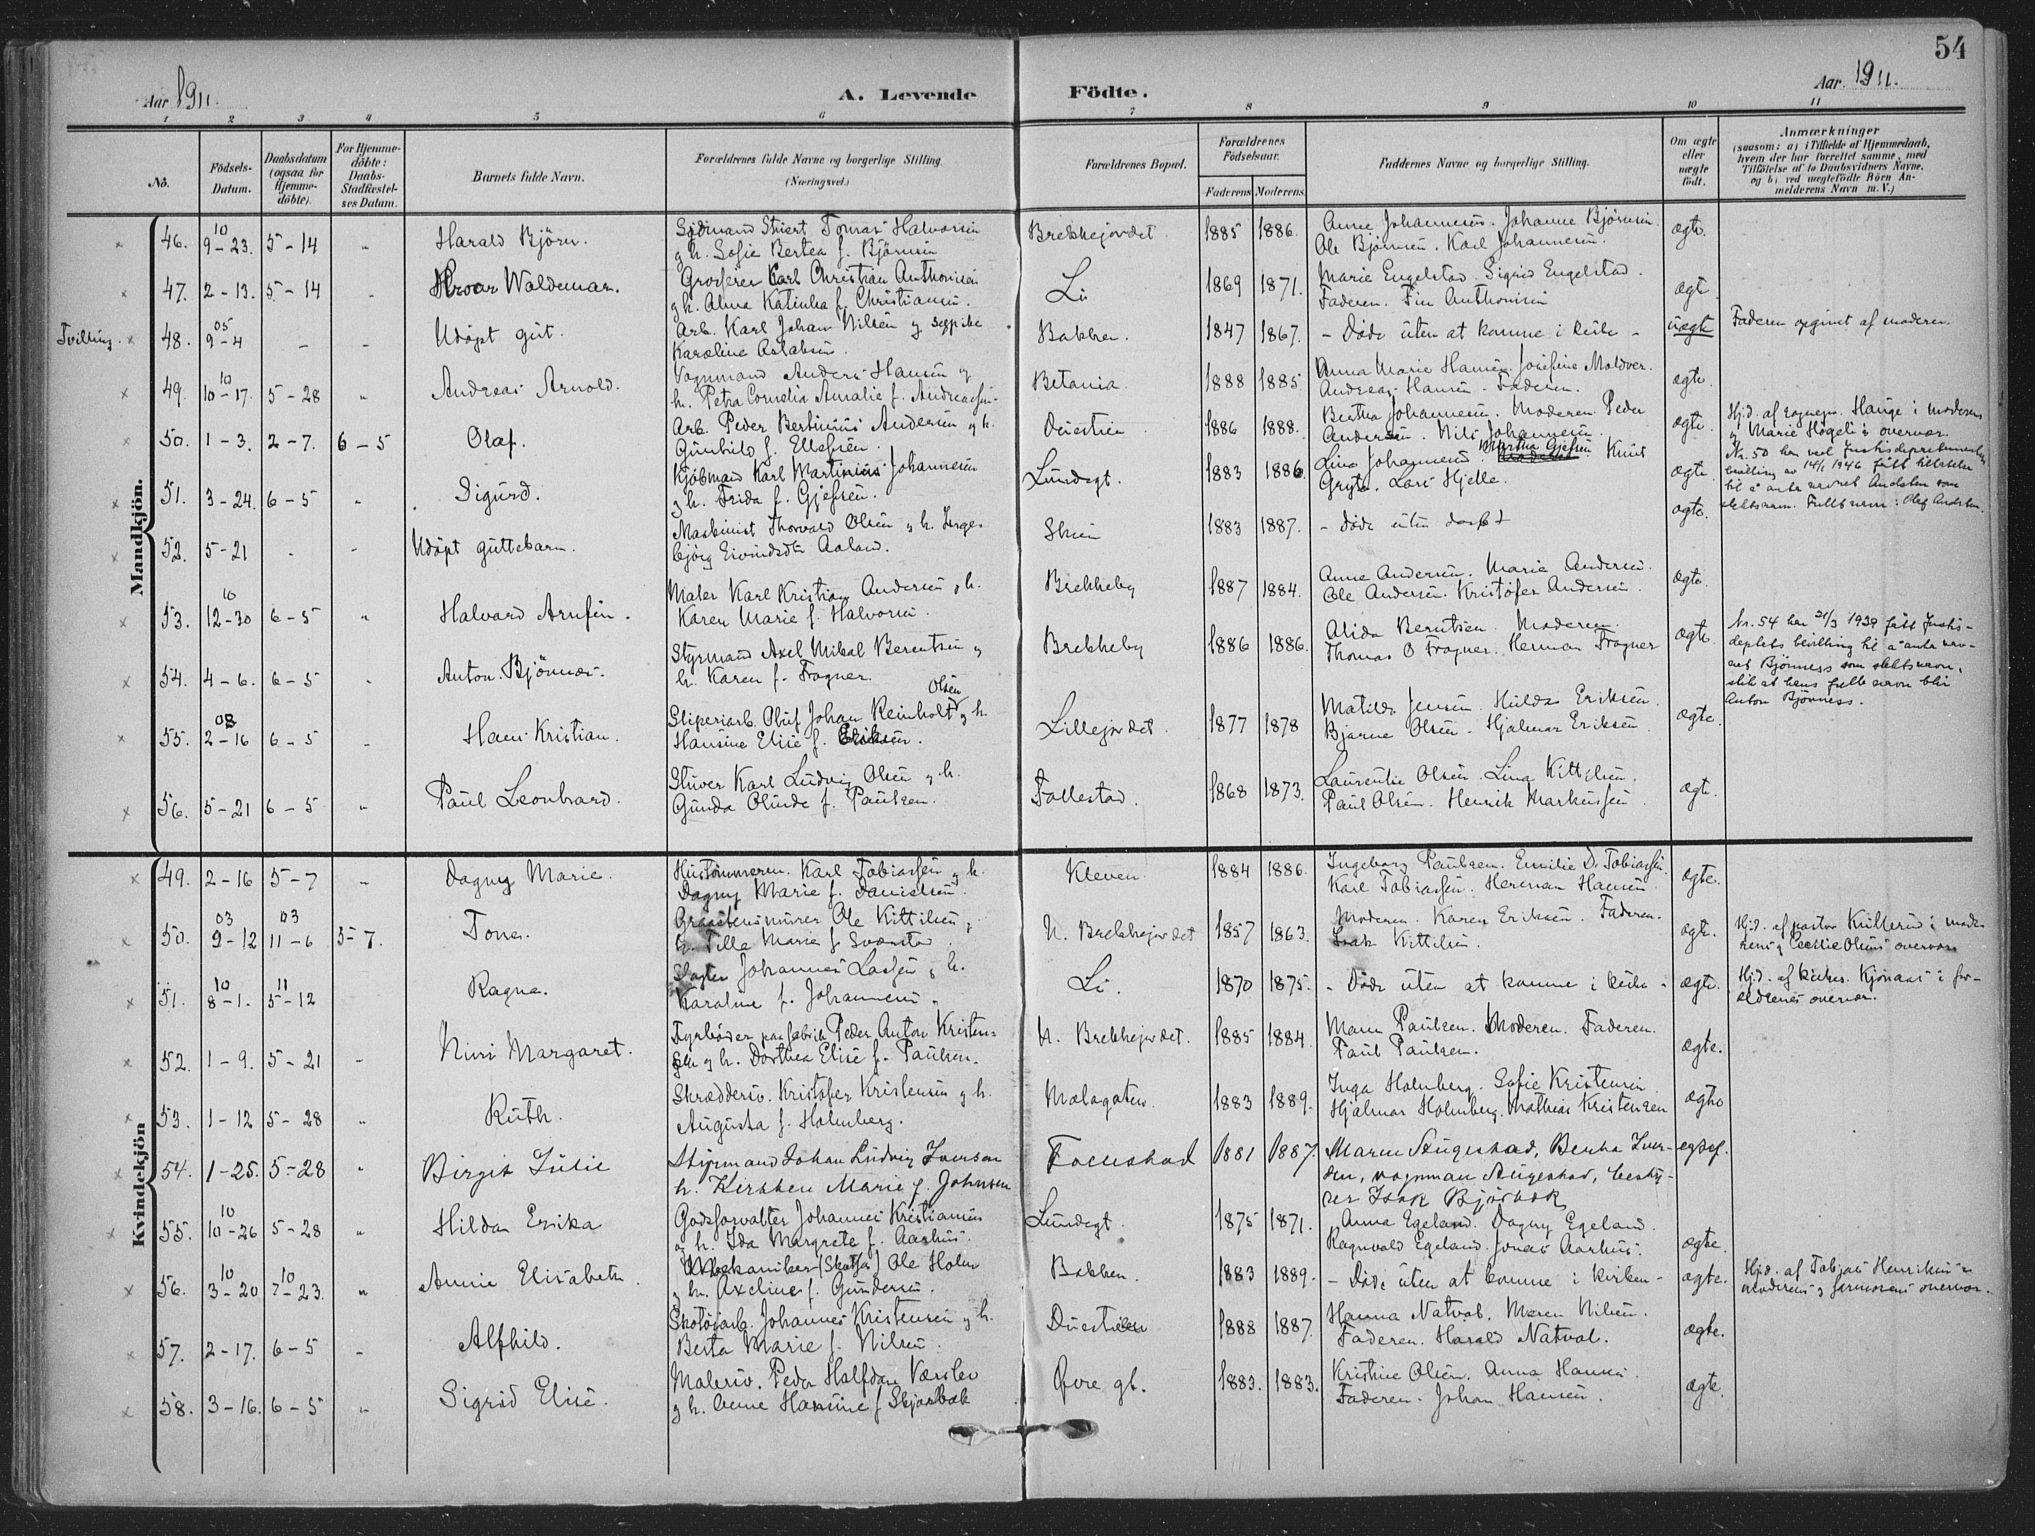 54
Aar 1911.
A. Levende Födte.
Aar 1911.
1 2 3 4 5 6 7 8 9 10 11
No.
Födsels-Datum.
Daabsdatum (ogsaa for Hjemme-döbte).
For Hjemme-döbte: Daabs-Stadfæstel-ses Datum.
Barnets fulde Navn.
Forældrenes fulde Navne og borgerlige Stilling. (Næringsvei.)
Forældrenes Bopæl.
Forældrenes Födselsaar.
Faderens Moderens.
Faddernes Navne og borgerlige Stilling.
Om ægte eller uægte födt.
Anmærkninger (saasom: a) i Tilfælde af Hjemmedaab, hvem der har forrettet samme, med Tilföielse af to Daabsvidners Navne, og b) ved uægtefödte Börn An-melderens Navn m. V.)
Mandkjön.
46. 10 9-23. 5-14 " Harald Björn. Halvorsen
g h. Sofie Bertea f. Bjørnsen Brekkejordet. 1885 1886. Anne Johannesen. Johanne Bjørnsen
Ole Bjørnsen. Karl Johannesen. ægte.
47. 2-13. 5-14 " Waldemar. Grosserer Karl Christian Anthonisen
g h. Alma Katinka f. Christiansen. Li 1869 1871. Marie Engelstad. Sigrid Engelstad.
Faderen. Finn Anthonisen ægte
Tvilling. 48. 05 9-4 - - Udøpt gut. Arb. Karl Johan Nilsen g
Karoline Aslaksen. Bakken. 1847 1867. - Døde uten at komme i kirke - uægte Faderen opgivet af moderen.
49. 10 10-17. 5-28 " Andreas Arnold. Vognmand Anders Hansen g
h. Petra Cornelia Amalie f. Andreassen. Betania. 1888 1885 Anna Marie Hansen. Josefine Moldver.
Andreas Hansen. Faderen. ægte.
50. 1-3. 2-7. 6-5 Olaf. Arb. Peder Bertinius Andersen g h.
Gunhild f. Ellefsen. Duestien 1886 1888. Bertha Johannesen. Moderen. Peder
Andersen. Nils Johannesen. ægte. Hjd. af sognepr. Hauge i moderens
g Marie Høgeli's overvær.
Nr. 50 har ved Justisdepartementets
bevilling av 14/1 1946 fått tillatelse
til å anta navnet Andsten som
slektsnavn. Fullt navn: Olaf Andsten.
51. 3-24. 6-5 " Sigurd. Kjøbmand Karl Martinius Johannesen
g h. Frida f. Gjefsen. Lundegt. 1883 1886 Lina Johannesen Martha Gjefsen. Knut
Gryte. Lars Hjelle. ægte
52. 5-21 - - Udøpt guttebarn. Maskinist Thorvald Olsen g h. Inge-
bjørg Eivindsdtr Aaland. Skien 1883 1887. - døde uten daap ægte.
53. 10 12-30 6-5 " Halvard Arnfin. Maler Karl Kristian Andersen g h.
Karen Marie f. Halvorsen. Brekkeby 1887 1884. Anne Andersen. Marie Andersen.
Ole Andersen. Kristofer Andersen. ægte.
54. 4-6. 6-5 " Anton Bjönnæs. Styrmand Axel Mikal Berentsen g
h. Karen f. Fragner. Brekkeby 1886 1886. Alida Berntsen. Moderen.
Thomas O Fragner. Herman Fragner ægte. Nr. 54 har 21/3 1939 fått Justis-
deptets bevilling til å anta nav-
net Bjønness som slektsnavn,
slik at hans fulle navn blir
Anton Bjønness.
55. 08 2-16 6-5 " Hans Kristian. Sliperiarb. Oluf Johan Reinholt Olsen g h.
Hansine Elise f. Eriksen. Lillejordet. 1877 1878 Matilde Jensen. Hulda Eriksen.
Bjarne Olsen. Hjalmar Eriksen. ægte.
56. 5-21 6-5 " Paul Leonhard. Stuver Karl Ludvig Olsen g h.
Gunda Olinde f. Paulsen. Follestad. 1868 1873. Laurentie Olsen. Lina Kittelsen.
Paul Olsen. Henrik Markussen ægte.
Kvindekjön
49. 2-16 5-7 " Dagny Marie. Hustømmerm. Karl Tobiassen g h.
Dagny Marie f. Danielsen. Kleven. 1884 1886. Ingeborg Paulsen. Emilie D. Tobiassen
Karl Tobiassen. Herman Hansen. ægte.
50. 03 9-12 03 11-6 5-7. Tone. Graastensmurer Ole Kittilsen g
h. Tilla Marie f. Svanstad. N. Brekkejordet 1857 1863. Moderen. Karen Eriksen. Faderen.
Isak Kittilsen. ægte. Hjd. af pastor Kullerud i mode
rens g Cecilie Olsens overvær
51. 10 8-1. 11 5-12 Ragna. Slagter Johannes Lassen g h.
Karoline f. Johannesen. Li. 1870 1875. - Døde uten at komme i kirke - ægte. Hjd. af kirkes. Kjønaas i for-
ældrenes overvær.
52. 1-9. 5-21 - Nini Margaret. Fyrbøder paa fabrik Peder Anton Kristen-
sen g h. Dorthea Elise f. Paulsen. N. Brekkejordet. 1885 1884. Maren Paulsen. Moderen. Faderen.
Paul Paulsen. ægte.
53. 1-12 5-28 " Ruth. Skrædderv. Kristofer Kristensen g h.
Augusta f. Holmberg. Mælagaten. 1883 1889. Inga Holmberg. Sofie Kristensen
Hjalmar Holmberg. Mathias Kristensen ægte
54. 1-25. 5-28 " Birgit Julie Styrmand Johan Ludvig Iversen
h. Kirsten Marie f. Johnsen Follestad 1881 1887. Maren Stugestad, Bertha Iver-
sen, vognman Stugestad, besty-
rer Isak Bjørbæk
55. 10 10-26 5-28 " Hilda Erika Godsforvalter Johannes Kristiansen
g h. Ida Margrete f. Aarhus. Lundegt. 1875 1871. Anna Egeland. Dagny Egeland.
Ragnvald Egeland. Jonas Aarhus. ægte.
56. 10 3-20 10 7-23. " Annie Elisabeth Mekaniker (Skotfos) Ole Holm
g h. Axeline f. Gundersen. Bakken. 1883 1889. - Døde uten at komme i kirken - ægte. Hjd. af Tobias Henriksen i
moderens g farmorens overvær.
57. 2-17. 6-5 - Alfhild. Skotøiarb. Johannes Kristensen g h.
Berta Marie f. Nilsen. Duestien 1888 1887. Hanna Natval. Maren Nilsen.
Faderen. Harald Natval. ægte.
58. 3-16. 6-5 " Sigrid Elise. Malersv. Peder Halfdan Værslev
g h. Anne Hansine f. Skjærbæk Øvre gt. 1883. 1883. Kristine Olsen. Anna Hansen
Faderen. Johan Hansen. ægte.